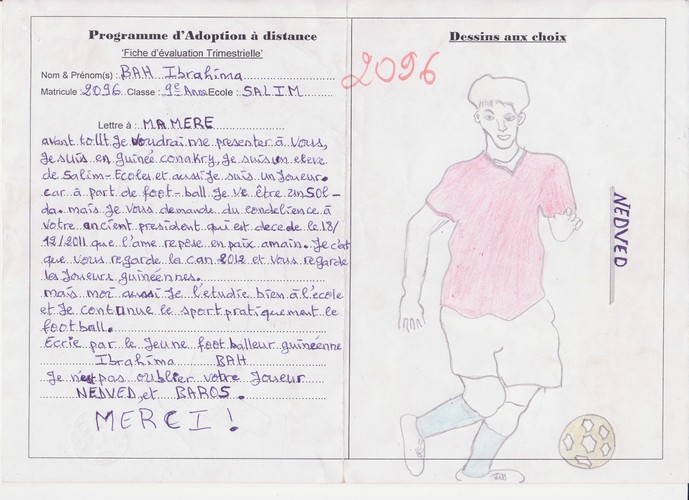 Programme d'Adoption à distance
'Fiche d'évaluation Trimestrielle'
Nom & Prénom(s) : BAH Ibrahima
Matricule : 2096 Classe : 9e Année Ecole : SALIM
Lettre à : MA MERE
avant toUt Je voudrai me presenter à Vous,
Je suis en guinée conakry, Je suis un eleve
de Salim-Ecoles et aussi Je suis un Joueur.
car à part de foot-ball Je ve être un Sol-
da. mais Je Vous demande du condelience à
Votre ancient president qui est decede le 18/
12/2011 que l'ame repose en paix amain. Je c'at
que vous regarde la can 2012 et vous regarde
les Joueurs guinéennes.
mais moi aussi Je l'etudie bien à l'ecole
et Je continue le sport pratiquement le
football.
Ecrie par le Jeune footballeur guinéenne
Ibrahima BAH
Je n'est pas oublier votre Joueur
NEDVED, et BAROS.
MERCI !
Dessins aux choix
2096
NEDVED